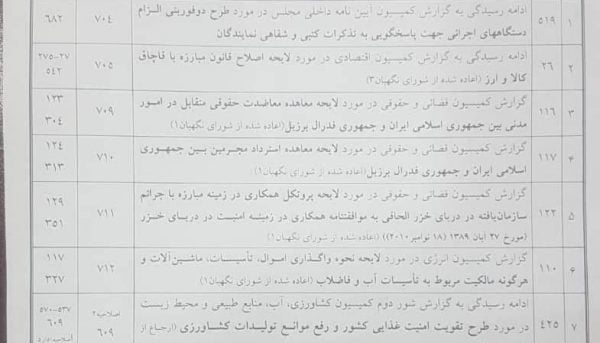 ۱ ۵۱۹ ادامه رسیدگی به گزارش کمیسیون آیین نامه داخلی مجلس در مورد طرح دوفوریتی الزام ۷۰۴ ۶۸۲
دستگاههای اجرائی جهت پاسخگویی به تذکرات کتبی و شفاهی نمایندگان
۲ ۲۶ ادامه رسیدگی به گزارش کمیسیون اقتصادی در مورد لایحه اصلاح قانون مبارزه با قاچاق ۷۰۵ ۲۷-۲۷۵
کالا و ارز (اعاده شده از شورای نگهبان۳) ۵۴۲
۳ ۱۱۶ گزارش کمیسیون قضائی و حقوقی در مورد لایحه معاهده معاضدت حقوقی متقابل در امور ۷۰۹ ۱۲۳
مدنی بین جمهوری اسلامی ایران و جمهوری فدرال برزیل(اعاده شده از شورای نگهبان۱) ۳۰۴
۴ ۱۱۷ گزارش کمیسیون قضائی و حقوقی در مورد لایحه معاهده استرداد مجرمین بین جمهوری ۷۱۰ ۱۲۴
اسلامی ایران و جمهوری فدرال برزیل(اعاده شده از شورای نگهبان۱) ۳۱۳
۵ ۱۲۲ گزارش کمیسیون قضائی و حقوقی در مورد لایحه پروتکل همکاری در زمینه مبارزه با جرائم ۷۱۱ ۱۲۹
سازمان‌یافته در دریای خزر الحاقی به موافقتنامه همکاری در زمینه امنیت در دریای خزر ۳۵۱
(مورخ ۲۷ آبان ۱۳۸۹ (۱۸ نوامبر۲۰۱۰)) (اعاده شده از شورای نگهبان۱)
۶ ۱۱۰ گزارش کمیسیون انرژی در مورد لایحه نحوه واگذاری اموال، تأسیسات، ماشین‌آلات و ۷۱۲ ۱۱۷
هرگونه مالکیت مربوط به تأسیسات آب و فاضلاب (اعاده شده از شورای نگهبان۱) ۳۲۷
۷ ۴۲۵ ادامه رسیدگی به گزارش شور دوم کمیسیون کشاورزی، آب، منابع طبیعی و محیط زیست ۵۳۷-۵۷۰
در مورد طرح تقویت امنیت غذایی کشور و رفع موانع تولیدات کشاورزی (ارجاع از ۶۰۹ ۶۰۹